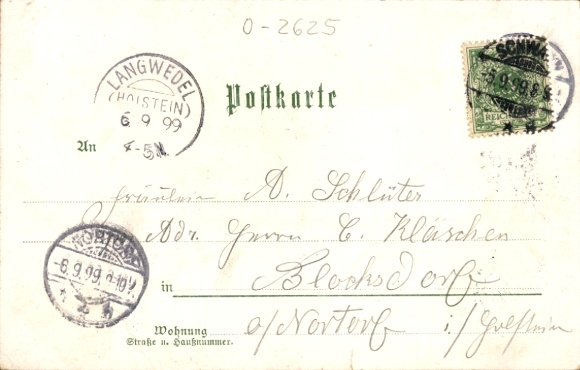 0-2625
LANGWEDEL
(HOLSTEIN)
6 9 99
SCHWAAN
-5.9.99.8-
REICHSPOST
Postkarte
An
Fräulein A. Schlüter
Adr. Herrn C. Kläschen
NORTORF
-6.9.99.
in Blocksdorf
Wohnung
Straße u. Hausnummer.
a/Nortorf i./Holstein